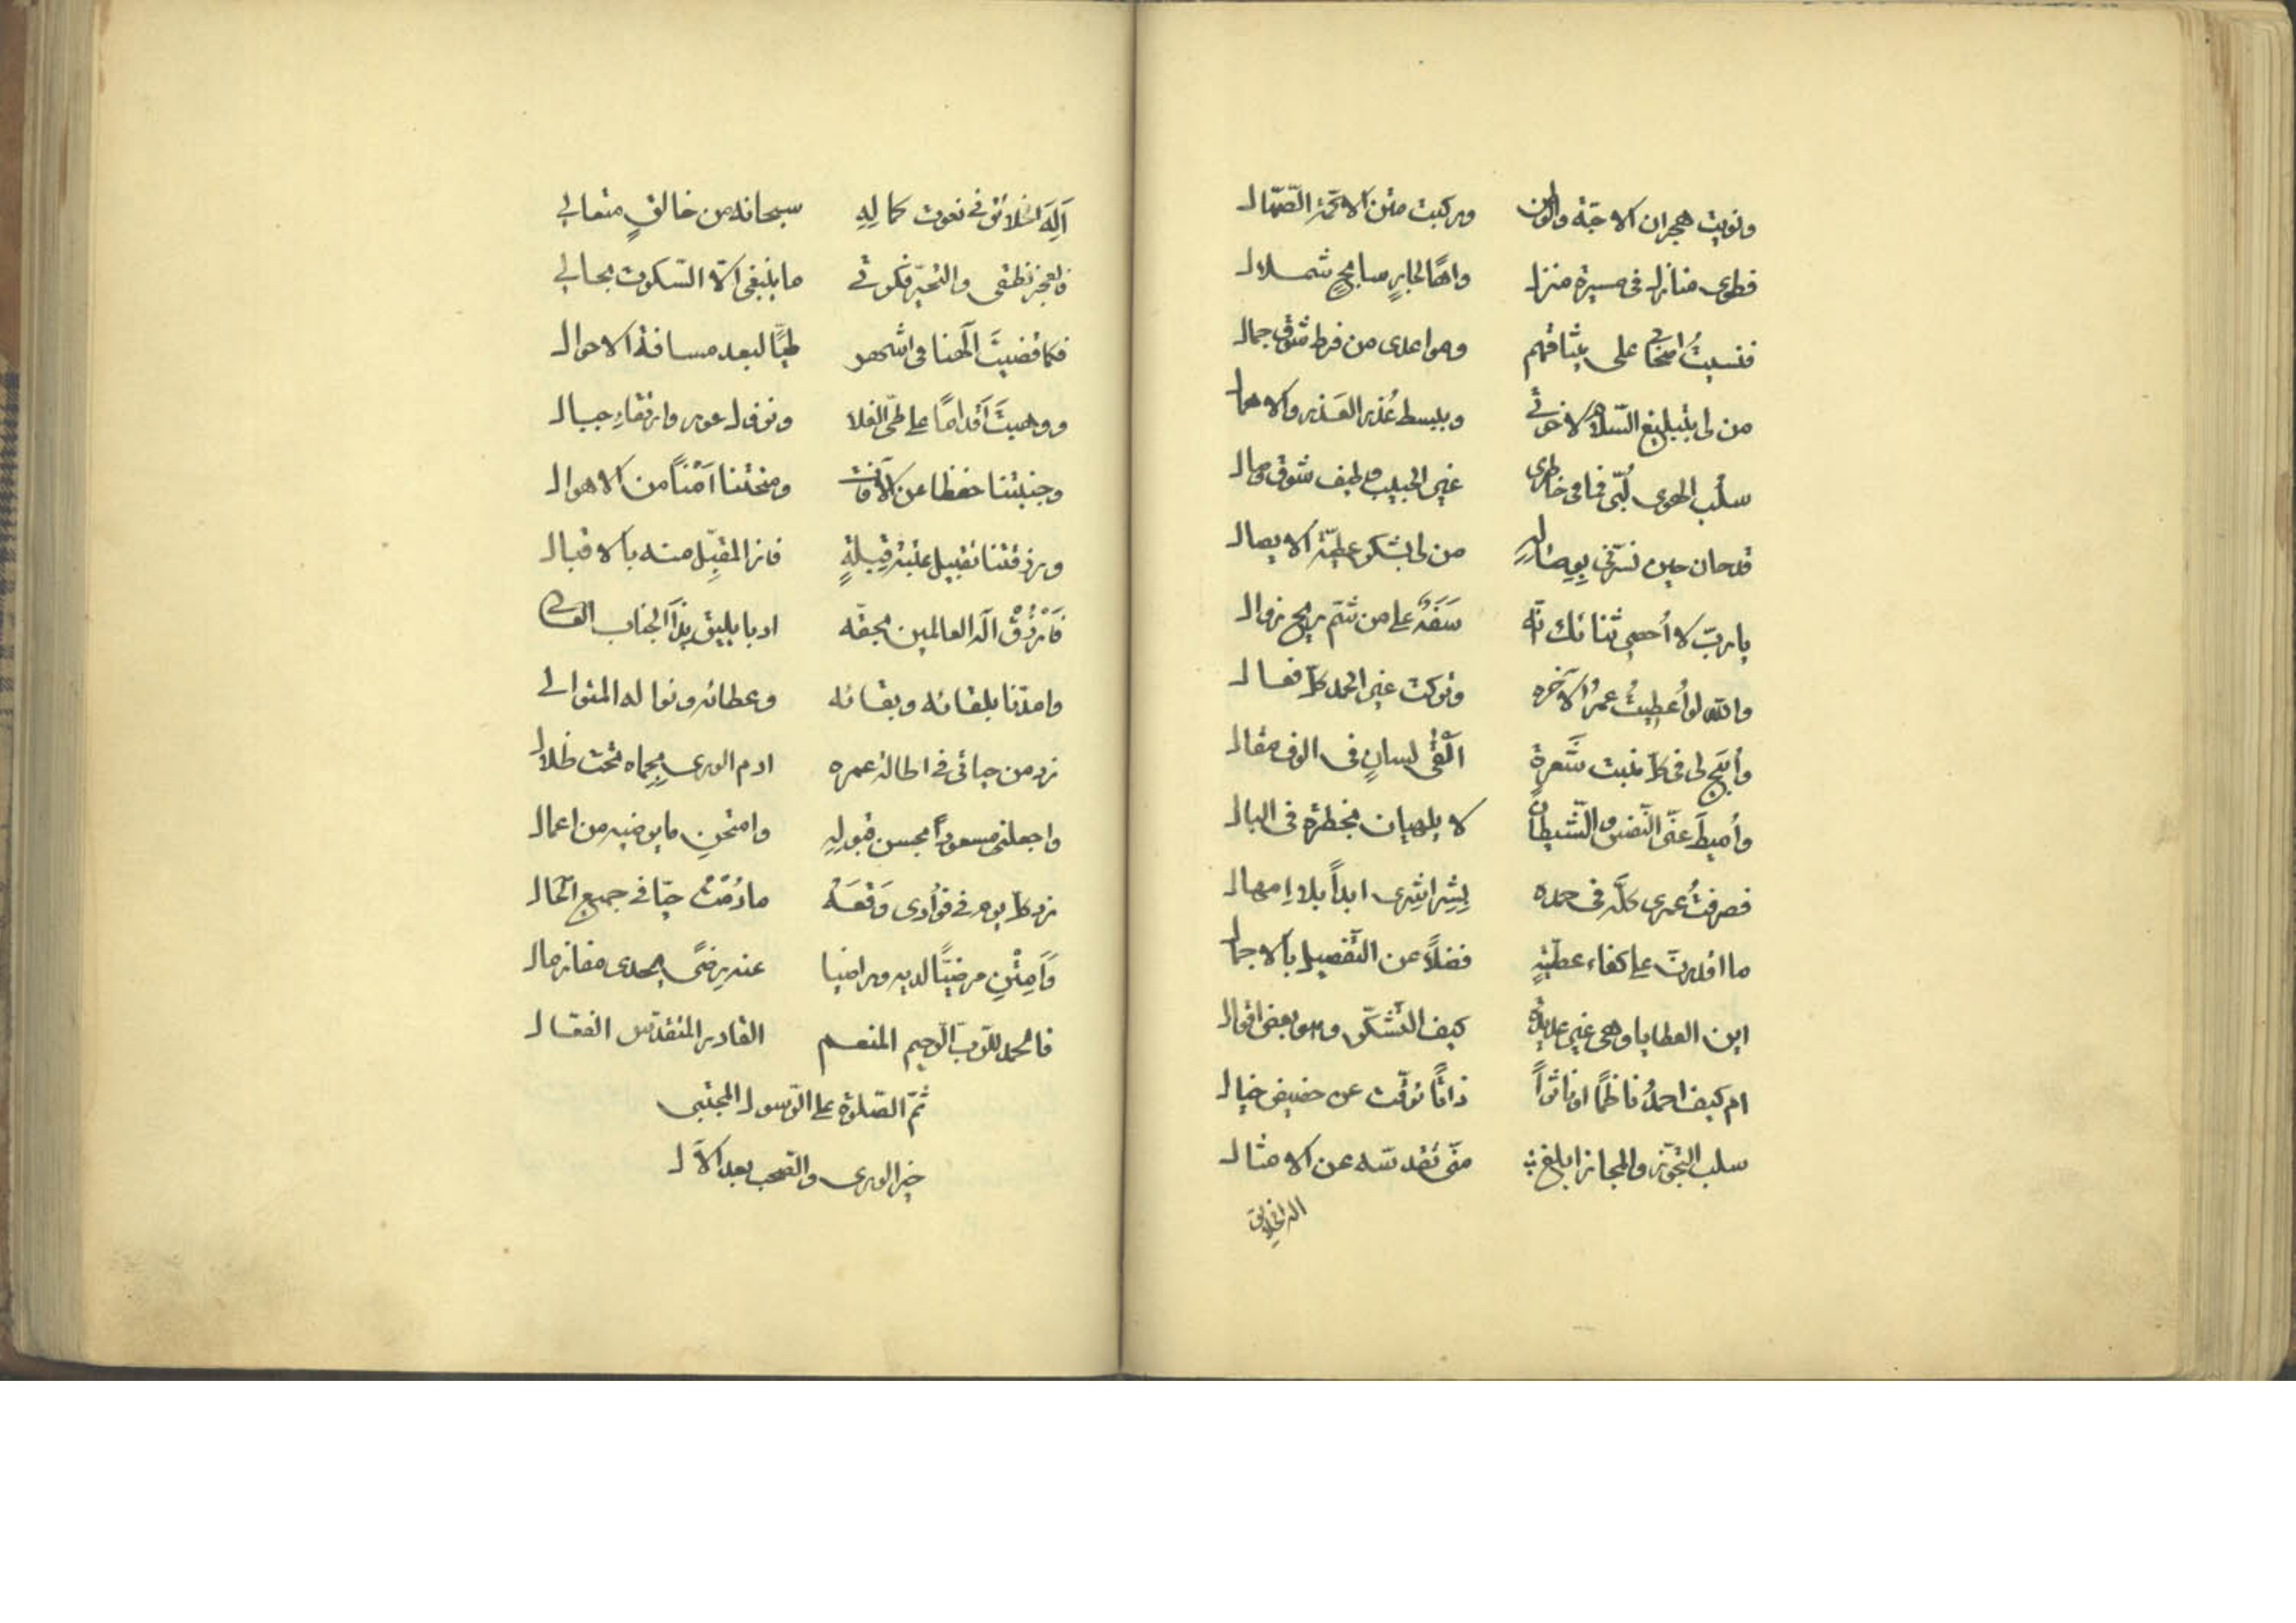 ونويت هجران الاحبّة والوطن وركبت متن الاتمّة الصّهّال
فطوى منازل فى مسيرة منزل واهًا لجابرٍ سابحٍ شملال
فنسيتُ اصحابى على ميثاقهم وهو اعدى من فرط شوق جمال
من لى بتبليغ السّلام لاخوتى وببسط عُذر العَذر والاهمال
سلب الهوى لُبّى فما فى خاطرى غير الحبيب وطيف شوق وصال
قد حان حين نسرّنى بوصاله من لى بشكر عطيّة الايصال
يا ربّ لا أُحصى ثنائك انّه سَفَهٌ على من شمّ ريح زوال
والله لو أُعطِيتُ عمرُ الآخره وتركت غير الحمد كلّ فعال
وأُتيحَ لى فى كلّ منبت شَعرةٍ اَلْفَىْ لسانٍ فى الوف مقال
وأُميطَ عنّى النّفس والشّيطان لا يلهيان بخطرة فى البال
فصرفتُ عمرى كلَّه فى حمده بشراشرى ابداً بلا اِمهال
ما اقدرتُ على كفاء عطيّةٍ فضلاً عن التّفصيل بالاجمال
اين العطايا وهى غير عديدة كيف التّشكّر وهو بعض افوال
ام كيف احمدُ ناظمًا او ناثراً ذاتًا ترقّت عن حضيض خيال
سلب التجوّز والمجاز ابلغ من تقدّسه عن الامثال
اله الخلايق
آلِهَ الخلائق فى نعوت كمالِهِ سبحانه من خالقٍ متعالى
فالعجز نطقى والتحيّر فكرتى ما ينبغى الّا السّكوت بحالى
فكما قضيتَ الٓهنا فى اشهر طيًّا لبعد مسافة الاحوال
ووهبتَ اَقدامًا على طىّ الفلا ونزول غور وارتقاءِ جبال
وجنبتنا حفظا عن الآفات ومنحتنا اَمْنًا من الاهوال
ورزقتنا تقبيل عتبة قِبلةٍ فاز المقبِّل منه بالاقبال
فَارْزُقْ الٓه العالمين بحقّه ادبا يليق بذا الجناب العالى
وامدّنا بلقائه وبقائه وعطائه ونواله المتوالى
زد من حياتى فى اطالة عمره ادم الورى بحِماه تحت ظلال
واجعلنى مسعوداً بحسن قبولِهِ وامنحنِ ما يرضيه من اعمال
زد كلّ يوم فى فؤادى وَقْعَهُ ما دُمْتُ حيّا فى جميع الحال
وَاَمِتْنِ مرضيًّا لديه وراضيا عنه رِضًى يهدى مفاز مال
فالحمد للرّبّ الرّحيم المنعم القادر المتقدّس الفعّال
ثمّ الصّلوة على الرّسول المجتبى
خير الورى والصّحب بعد الآل